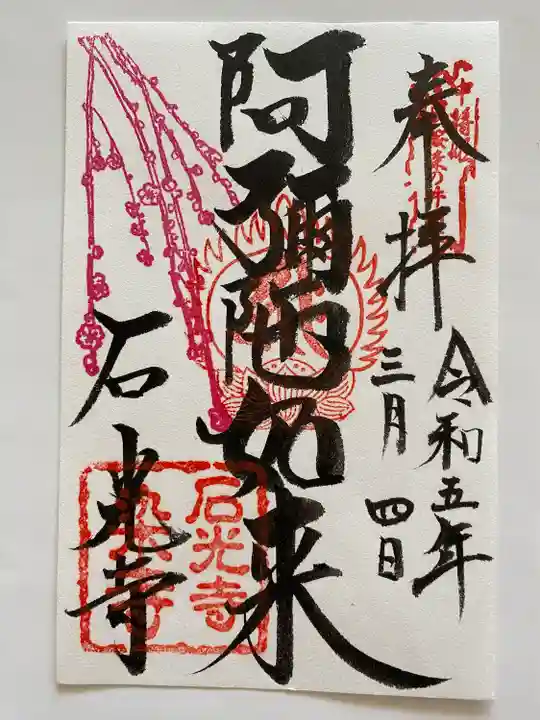 奉拝
令和五年
三月四日
阿彌陀如来
石光寺
石光寺
染寺